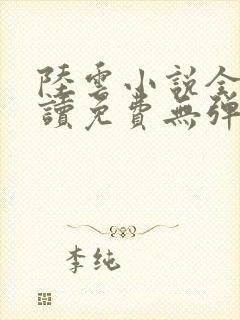 陸雲小說全
讀免費無彈
李纯